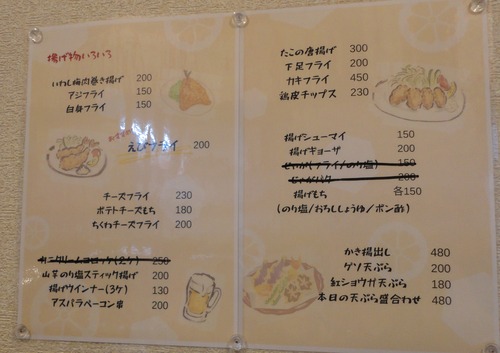 揚げ物いろいろ
いわし梅肉巻き揚げ 200
アジフライ 150
白身フライ 150
えびフライ 200
チーズフライ 230
ポテトチーズもち 180
ちくわチーズフライ 200
カニクリームコロッケ(2ケ) 250
山芋のり塩スティック揚げ 200
揚げウインナー(3ケ) 130
アスパラベーコン串 200
たこの唐揚げ 300
下足フライ 200
カキフライ 450
鶏皮チップス 230
揚げシューマイ 150
揚げギョーザ 200
じゃが(フライ/のり塩) 150
200
揚げもち 各150
(のり塩/おろししょうゆ/ポン酢)
かき揚出し 480
ゲソ天ぷら 200
紅ショウガ天ぷら 180
本日の天ぷら盛合わせ 480